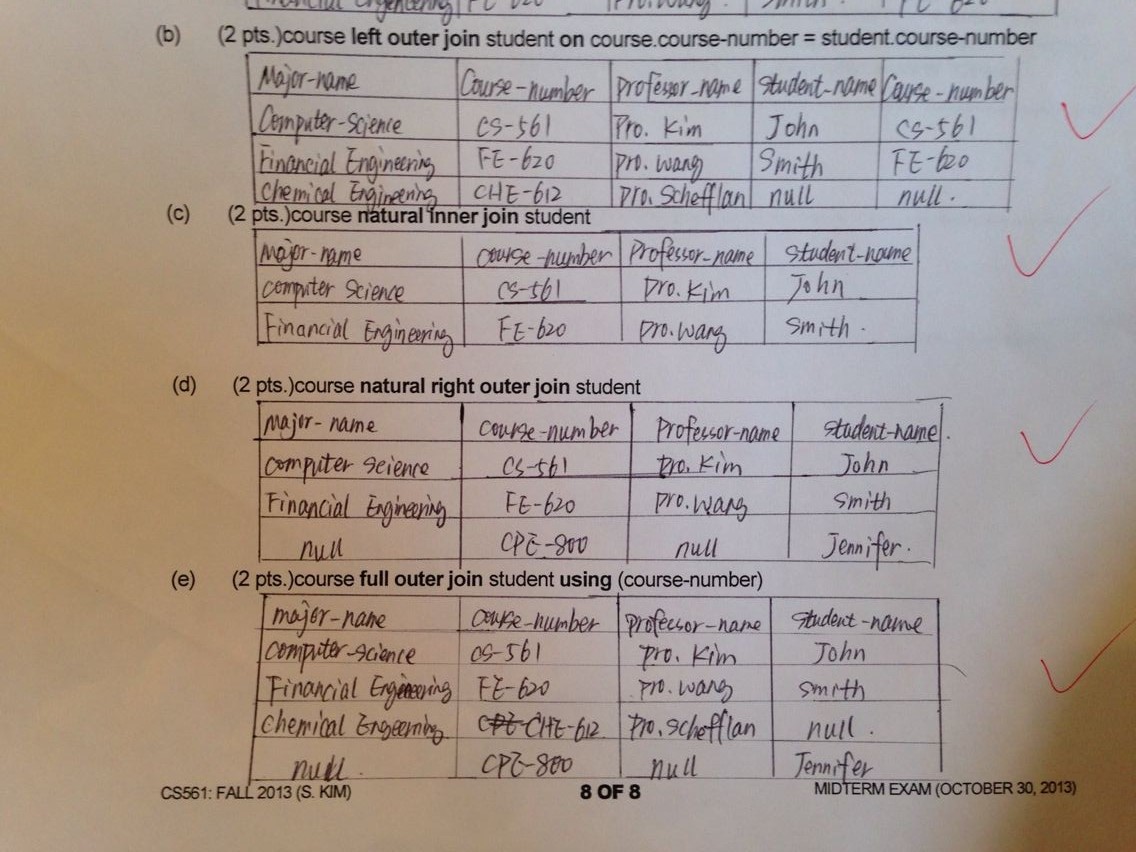 Financial Engineering FE-620 Pro. Wang Smith FE-620
(b) (2 pts.)course left outer join student on course.course-number = student.course-number
Major-name Course-number Professor-name Student-name Course-number
Computer-Science CS-561 Pro. Kim John CS-561
Financial Engineering FE-620 Pro. Wang Smith FE-620
Chemical Engineering CHE-612 Pro. Schefflan null null.
(c) (2 pts.)course natural inner join student
Major-name course-number Professor-name Student-name
Computer Science CS-561 Pro. Kim John
Financial Engineering FE-620 Pro. Wang Smith.
(d) (2 pts.)course natural right outer join student
major-name course-number Professor-name student-name.
Computer Science CS-561 Pro. Kim John
Financial Engineering FE-620 Pro. Wang Smith
null CPE-800 null Jennifer.
(e) (2 pts.)course full outer join student using (course-number)
major-name course-number professor-name student-name
Computer-science CS-561 Pro. Kim John
Financial Engineering FE-620 Pro. Wang Smith
Chemical Engeerning CHE-612 Pro. Schefflan null.
null. CPE-800 null Jennifer
CS561: FALL 2013 (S. KIM) 8 OF 8 MIDTERM EXAM (OCTOBER 30, 2013)